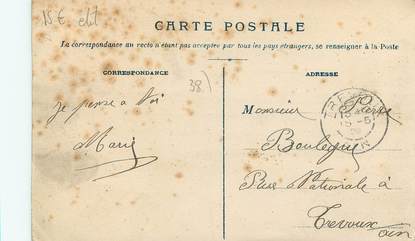 15 € elit
CARTE POSTALE
La correspondance au recto n'étant pas acceptée par tous les pays étrangers, se renseigner à la Poste
CORRESPONDANCE
ADRESSE
38)
je pense a toi
Marie
Monsieur Pierre
Boulegue
Rue Nationale à
Trevoux
Ain